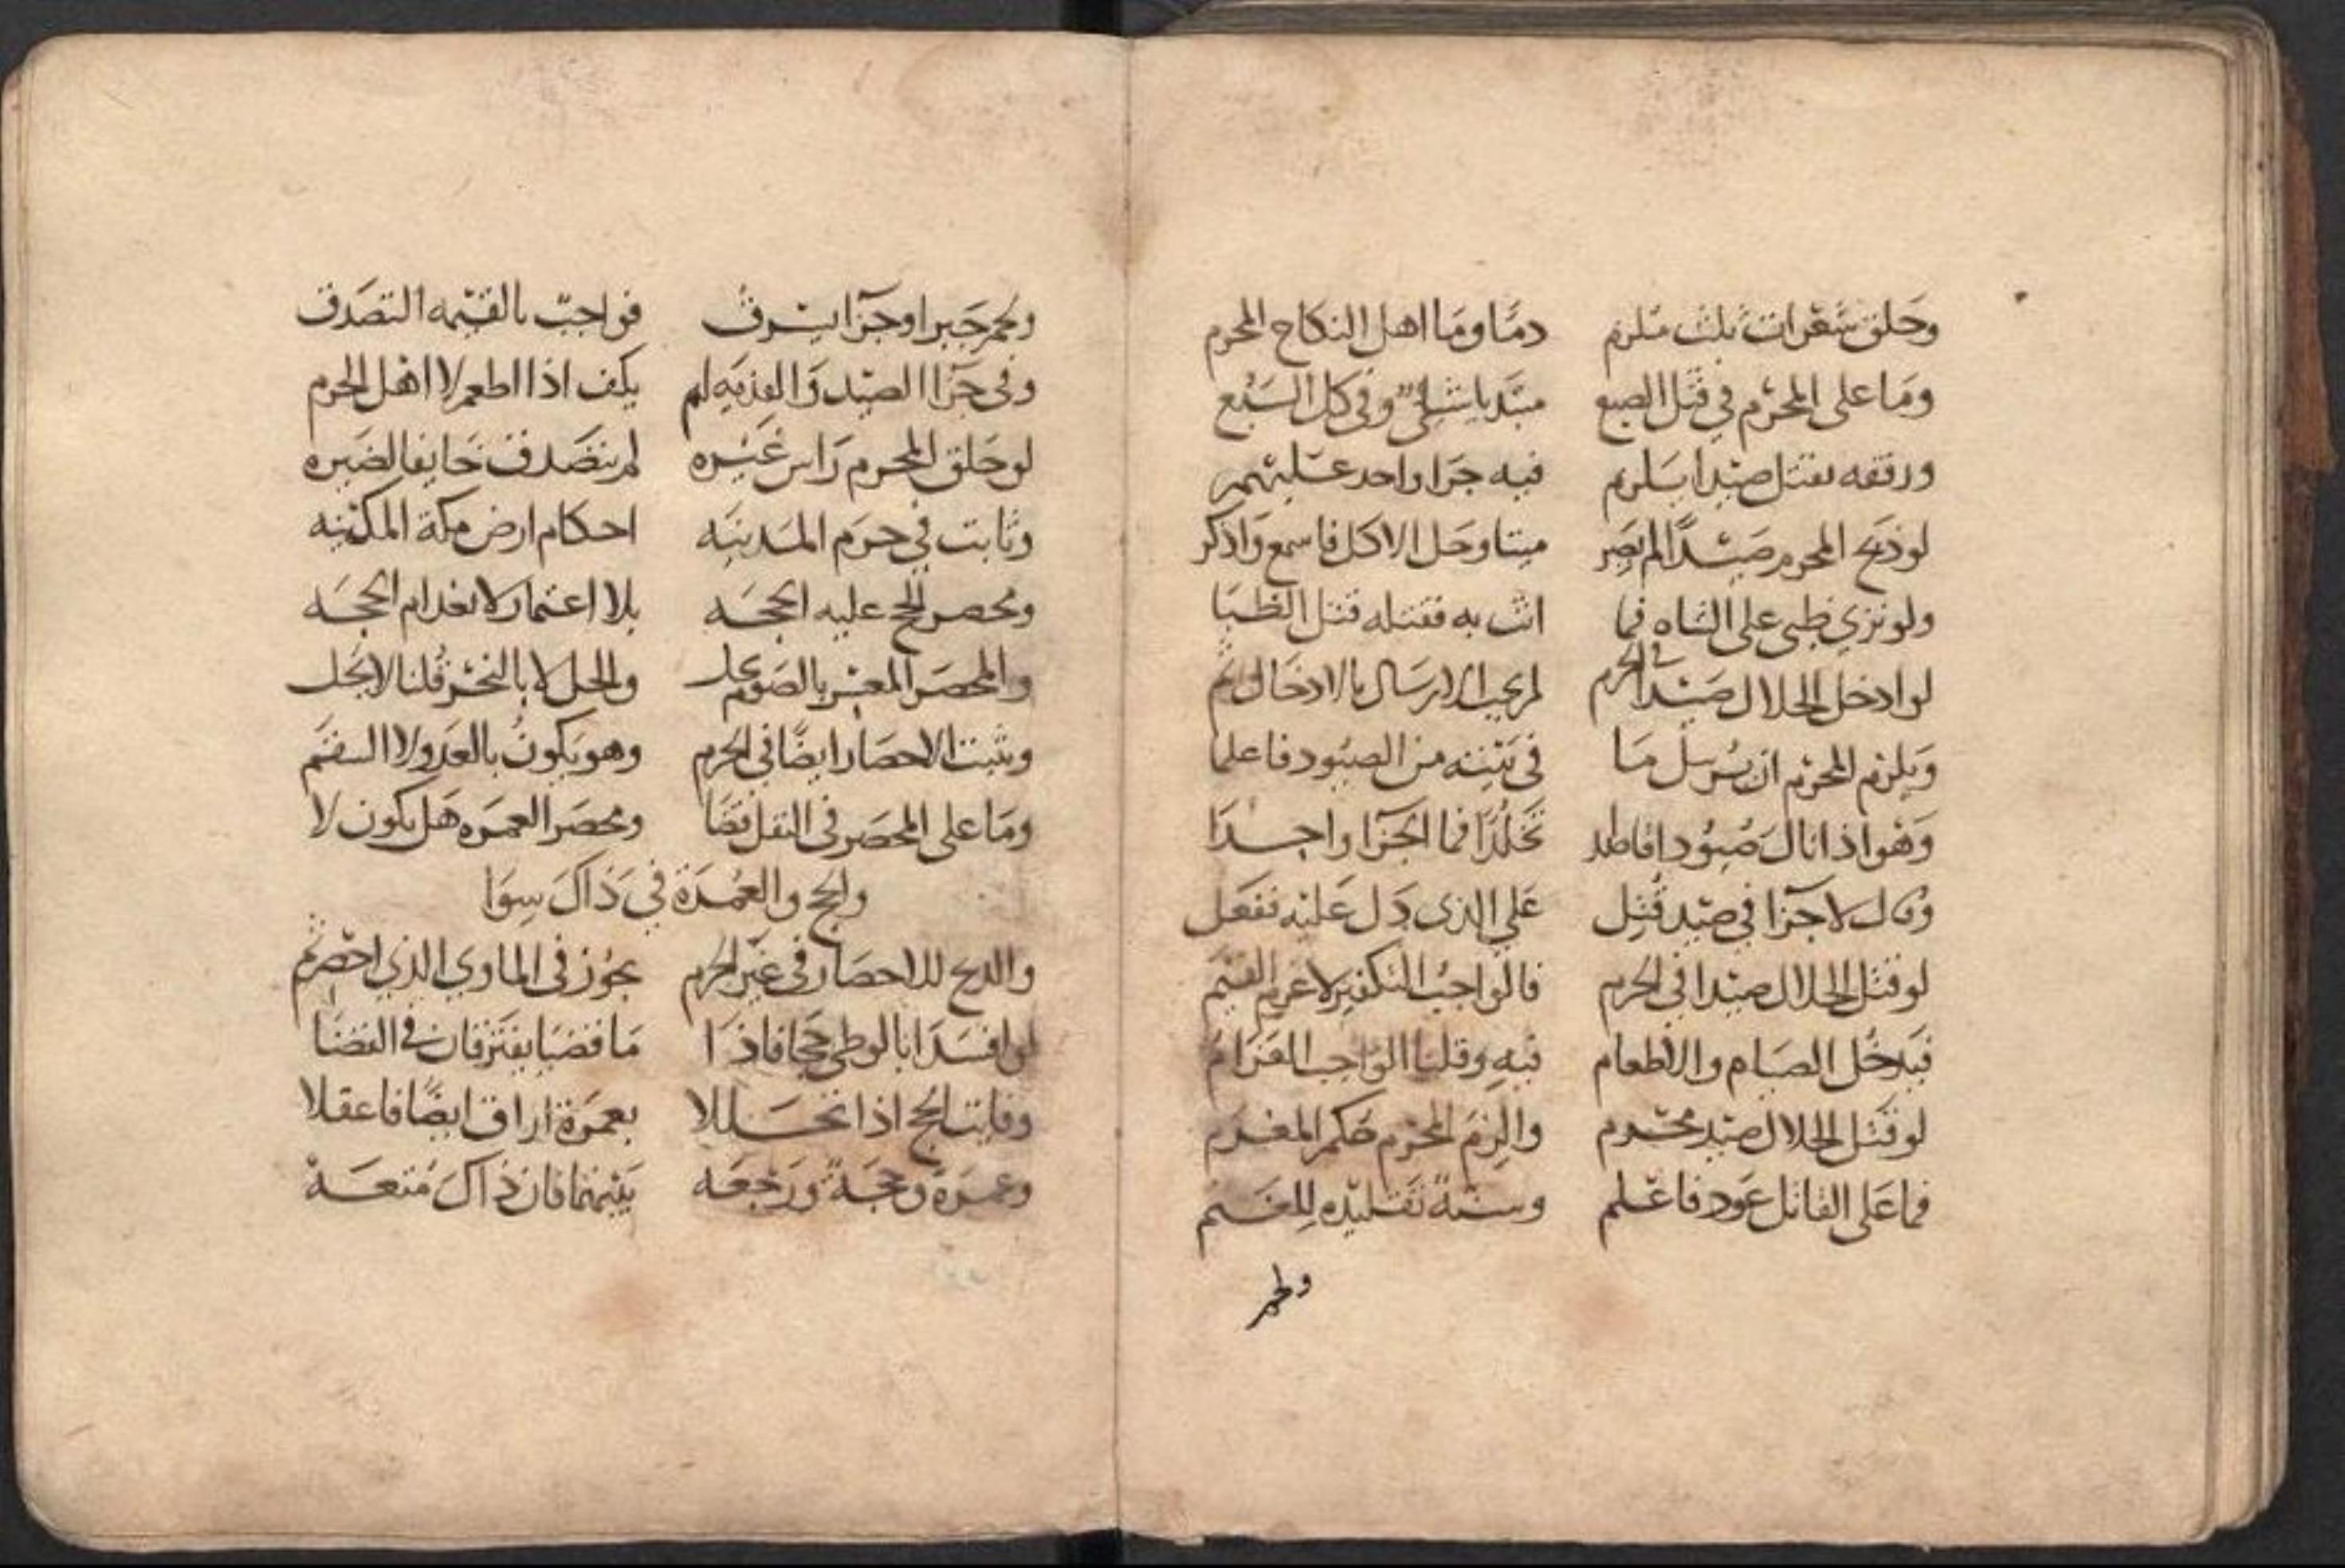 وحلق شعرات ثلث ملزم دما وما اهل النكاح المحرم
وما على المحرم في قتل الضبع مبتديا شي وفي كل السبع
ورفقه بقتل صيدا يلزم فيه جزا واحد عليهم
لو ذبح المحرم صيدا لم يصر ميتا وحل الاكل فاسمع واذكر
ولو نزي ظبي على الشاه فما اتت به فقتله قتل الظبا
لو ادخل الحلال صيدا في الحرم لم يجب الارسال بالادخال ثم
ويلزم المحرم ان يرسل ما في بيته من الصيود فاعلما
وهو اذا نال صيودا قاصدا تحللا فما الجزا واحدا
وقال لا جزا في صيد قتل على الذي دل عليه ففعل
لو قتل الحلال صيدا في الحرم فالواجب التكفير لا غرم القيم
فيدخل الصيام والاطعام فيه وقلنا الواجب الغرام
لو قتل الحلال صيد محرم والزم المحرم حكم المغرم
فما على القاتل عود فاعلم وسنة تقليده للغنم
ولحم
ولحم جبرا او جزا يسرق فواجب بالقيمه التصدق
وفي جزا الصيد والفديه لم يكف اذا اطعم لا اهل الحرم
لو حلق المحرم راس غيره لم يتصدق خايفا لضيره
وثابت في حرم المدينه احكام ارض مكة المكينه
ومحصر الحج عليه الحجه بلا اعتمار لانعدام الحجه
والمحصر المعسر بالصوم يحل والحل لا بالنحر قلنا لا يحل
ويثبت الاحصار ايضا في الحرم وهو يكون بالعدو لا السقم
وما على المحصر في النفل قضا ومحصر العمره هل يكون لا
والحج والعمرة في ذاك سوا
والذبح للاحصار في غير الحرم يجوز في الماوي الذي احصر ثم
لو افسدا بالوطي حجا فاذا ما قضيا يفترقان في القضا
وفايت الحج اذا تحللا بعمرة اراق ايضا فاعقلا
وعمرة وحجة ورجعه بينهما فان ذاك متعه